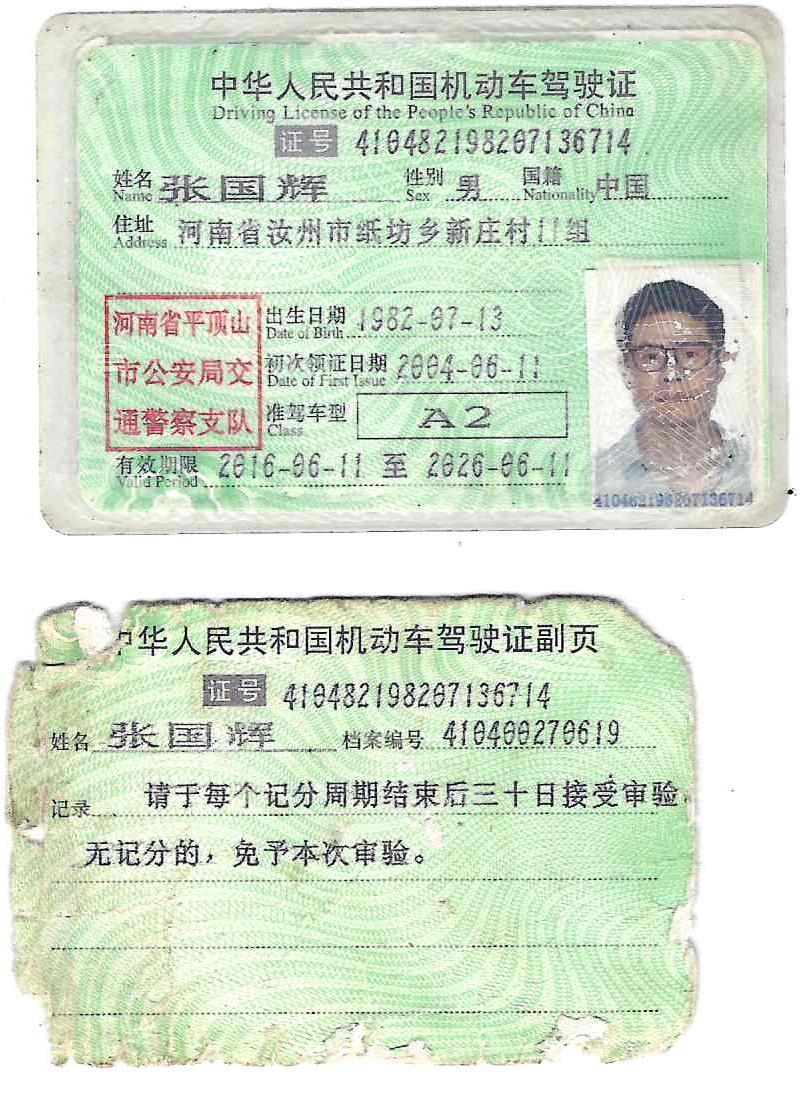 中华人民共和国机动车驾驶证
Driving License of the People's Republic of China
证号 410482198207136714
姓名 Name 张国辉 性别 Sex 男 国籍 Nationality 中国
住址 Address 河南省汝州市纸坊乡新庄村11组
河南省平顶山
市公安局交
通警察支队
出生日期 Date of Birth 1982-07-13
初次领证日期 Date of First Issue 2004-06-11
准驾车型 Class A2
有效期限 Valid Period 2016-06-11 至 2026-06-11
410482198207136714
中华人民共和国机动车驾驶证副页
证号 410482198207136714
姓名 张国辉 档案编号 410400270619
记录 请于每个记分周期结束后三十日接受审验。
无记分的，免予本次审验。